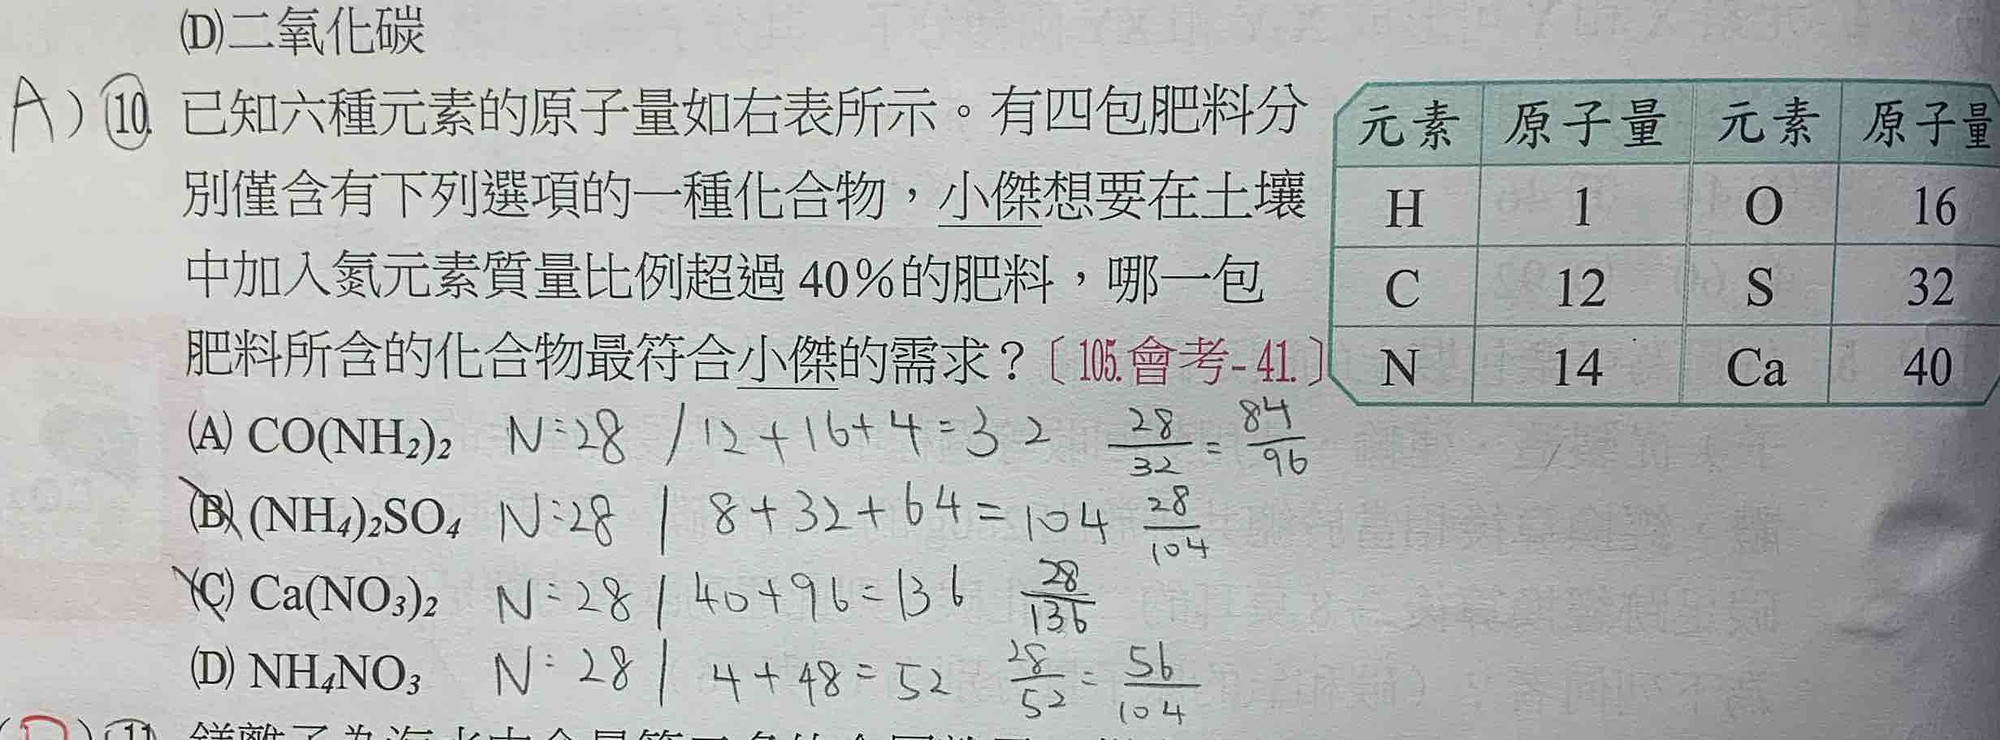 (D)二氧化碳
A)⑩ 已知六種元素的原子量如右表所示。有四包肥料分
別僅含有下列選項的一種化合物，小傑想要在土壤
中加入氮元素質量比例超過40%的肥料，哪一包
肥料所含的化合物最符合小傑的需求？〔105.會考-41.〕
元素 原子量 元素 原子量
H 1 O 16
C 12 S 32
N 14 Ca 40
(A) CO(NH₂)₂ N:28 / 12+16+4=32 28/32 = 84/96
(B) (NH₄)₂SO₄ N:28 | 8+32+64=104 28/104
(C) Ca(NO₃)₂ N:28 | 40+96=136 28/136
(D) NH₄NO₃ N:28 | 4+48=52 28/52 = 56/104